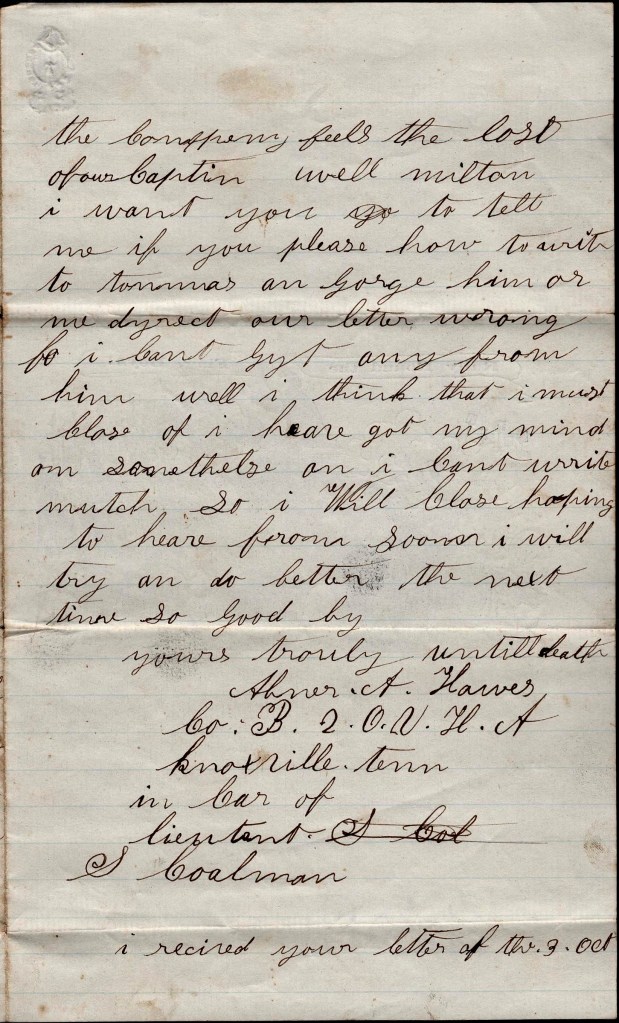 the Compeny feels the lost
of our Captin well milton
i want you yo to tell
me if you please how to writ
to tommas an Gorge him or
me dyrect our letter wrong
fo i Cant Gyt any from
him well i think that i must
Close of i heare got my mind
on somethelse an i Cant write
mutch So i Will Close hoping
to heare from soon i will
try an do better the next
time so Good by
yours trouly untill death
Abner. A. Hawes
Co. B. 2. O. V. H. A
knoxville. tenn
in Car of
lieutant. S Col
S Coalman
i recived your letter of the. 3. Oct